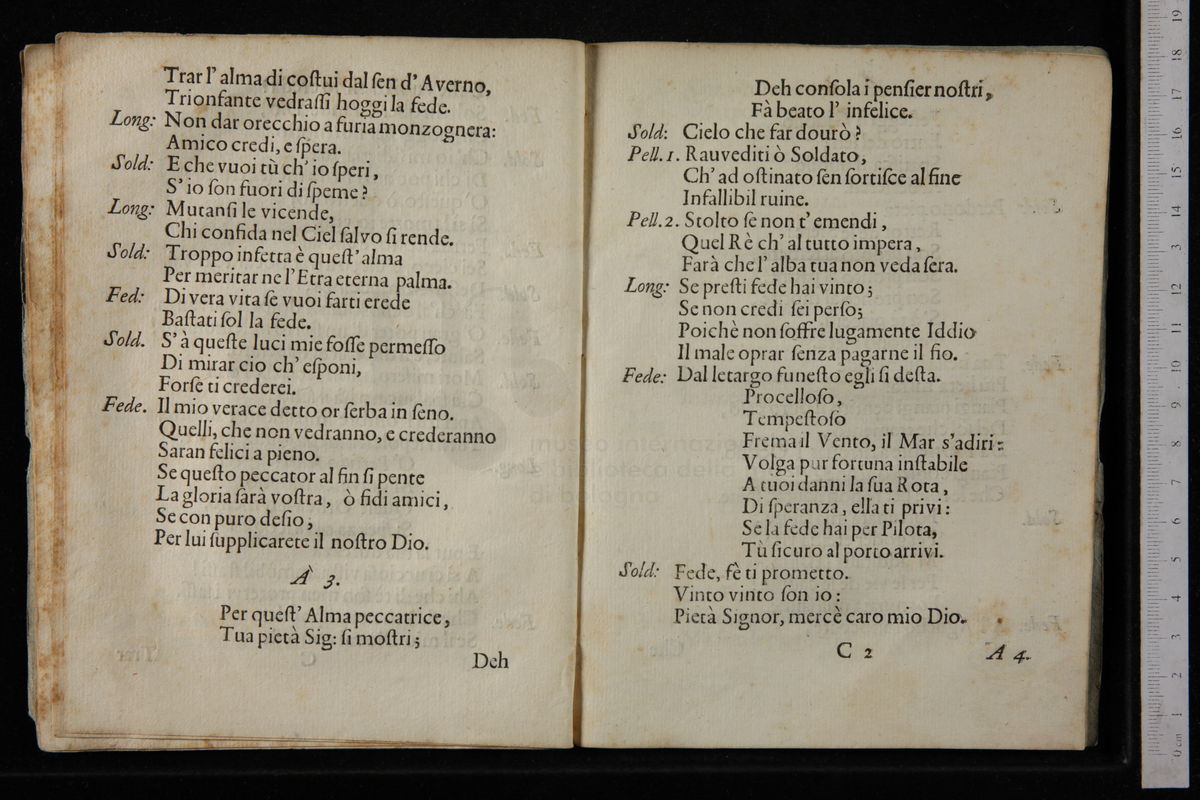 Trar l' alma di coſtui dal ſen d' Averno,
Trionfante vedraſſi hoggi la fede.
Long: Non dar orecchio a furia monzognera:
Amico credi, e ſpera.
Sold: E che vuoi tù ch' io ſperi,
S' io ſon fuori di ſpeme?
Long: Mutanſi le vicende,
Chi confida nel Ciel ſalvo ſi rende.
Sold: Troppo infetta è queſt' alma
Per meritar ne l' Etra eterna palma.
Fed: Di vera vita ſe vuoi farti erede
Baſtati ſol la fede.
Sold. S' à queſte luci mie foſſe permeſſo
Di mirar cio ch' eſponi,
Forſe ti crederei.
Fede. Il mio verace detto or ſerba in ſeno.
Quelli, che non vedranno, e crederanno
Saran felici a pieno.
Se queſto peccator al fin ſi pente
La gloria ſarà voſtra, ò fidi amici,
Se con puro deſio,
Per lui ſupplicarete il noſtro Dio.
À 3.
Per queſt' Alma peccatrice,
Tua pietà Sig: ſi moſtri;
Deh
Deh conſola i penſier noſtri,
Fà beato l' infelice.
Sold: Cielo che far dourò?
Pell. 1. Rauvediti ò Soldato,
Ch' ad oſtinato ſen ſortiſce al fine
Infallibil ruine.
Pell. 2. Stolto ſe non t' emendi,
Quel Rè ch' al tutto impera,
Farà che l' alba tua non veda ſera.
Long: Se preſti fede hai vinto;
Se non credi ſei perſo;
Poichè non ſoffre lugamente Iddio
Il male oprar ſenza pagarne il fio.
Fede: Dal letargo funeſto egli ſi deſta.
Procelloſo,
Tempeſtoſo
Frema il Vento, il Mar s'adiri:
Volga pur fortuna inſtabile
A tuoi danni la ſua Rota,
Di ſperanza, ella ti privi:
Se la fede hai per Pilota,
Tù ſicuro al porto arrivi.
Sold: Fede, fè ti prometto.
Vinto vinto ſon io:
Pietà Signor, mercè caro mio Dio.
C 2
A 4.
museo internazionale
biblioteca della
di bologna
0 cm 1 2 3 4 5 6 7 8 9 10 11 12 13 14 15 16 17 18 19